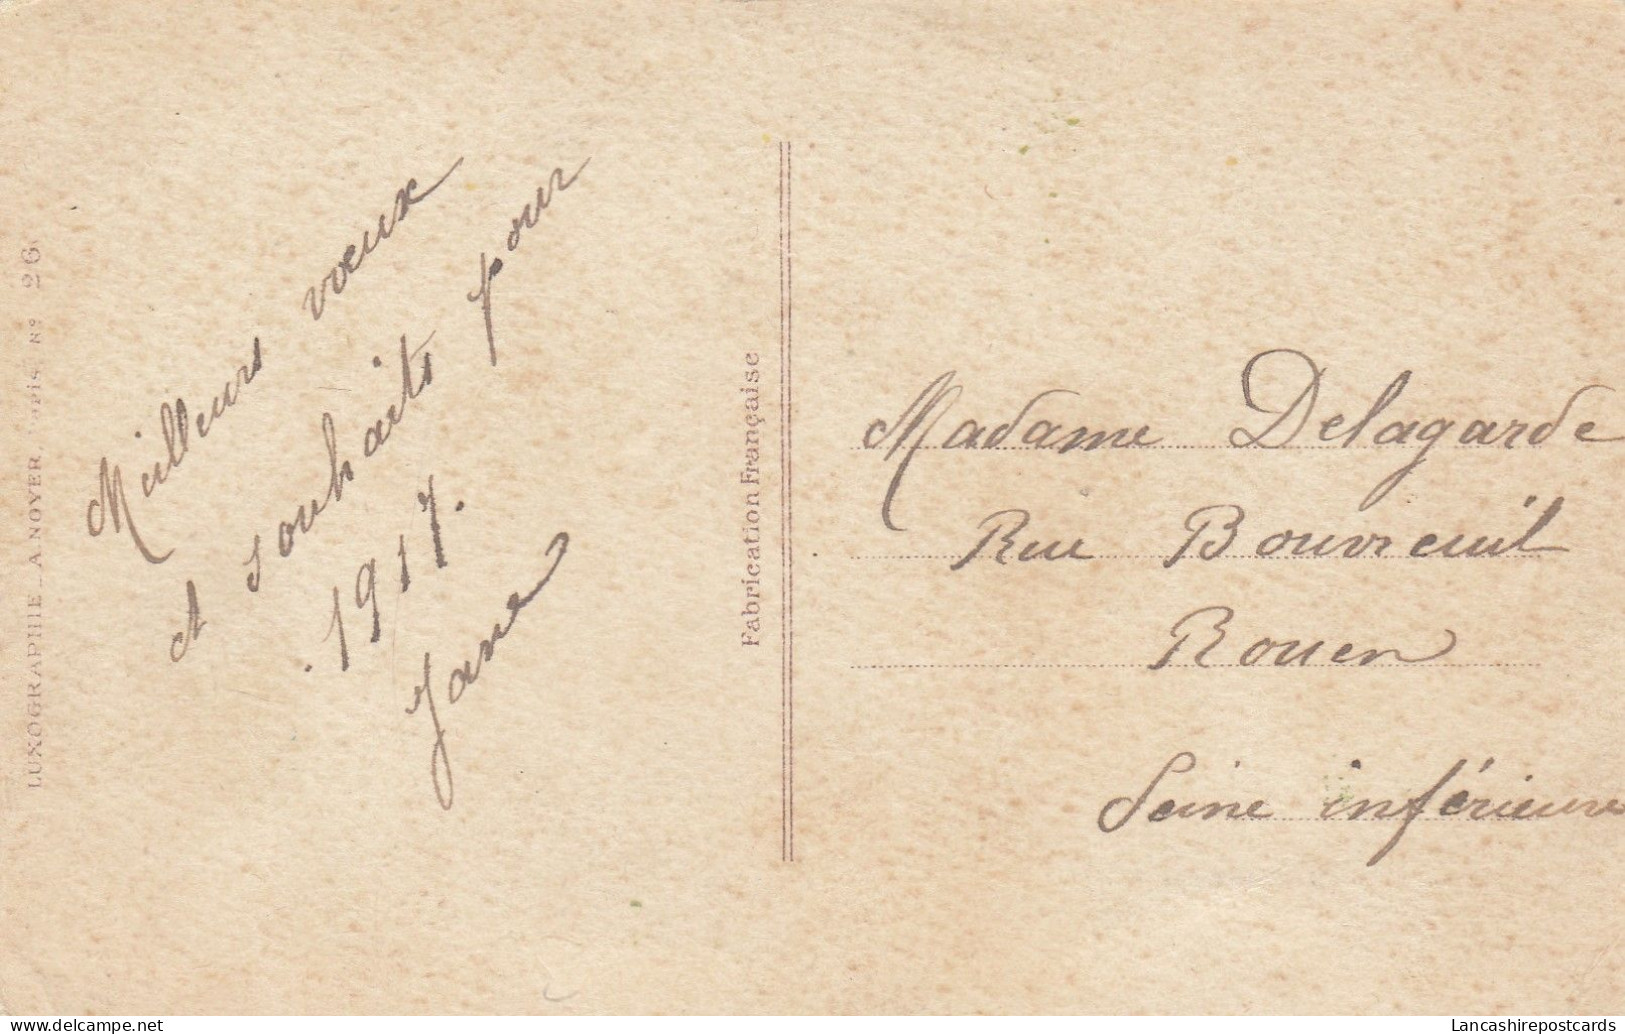 LUXOGRAPHIE_A NOYER, Paris. No 26
Meilleurs voeux
et souhaits pour
.1917.
Jane
Fabrication Française
Madame Delagarde
Rue Bouvreuil
Rouen
Seine inférieure
Lancashirepostcards